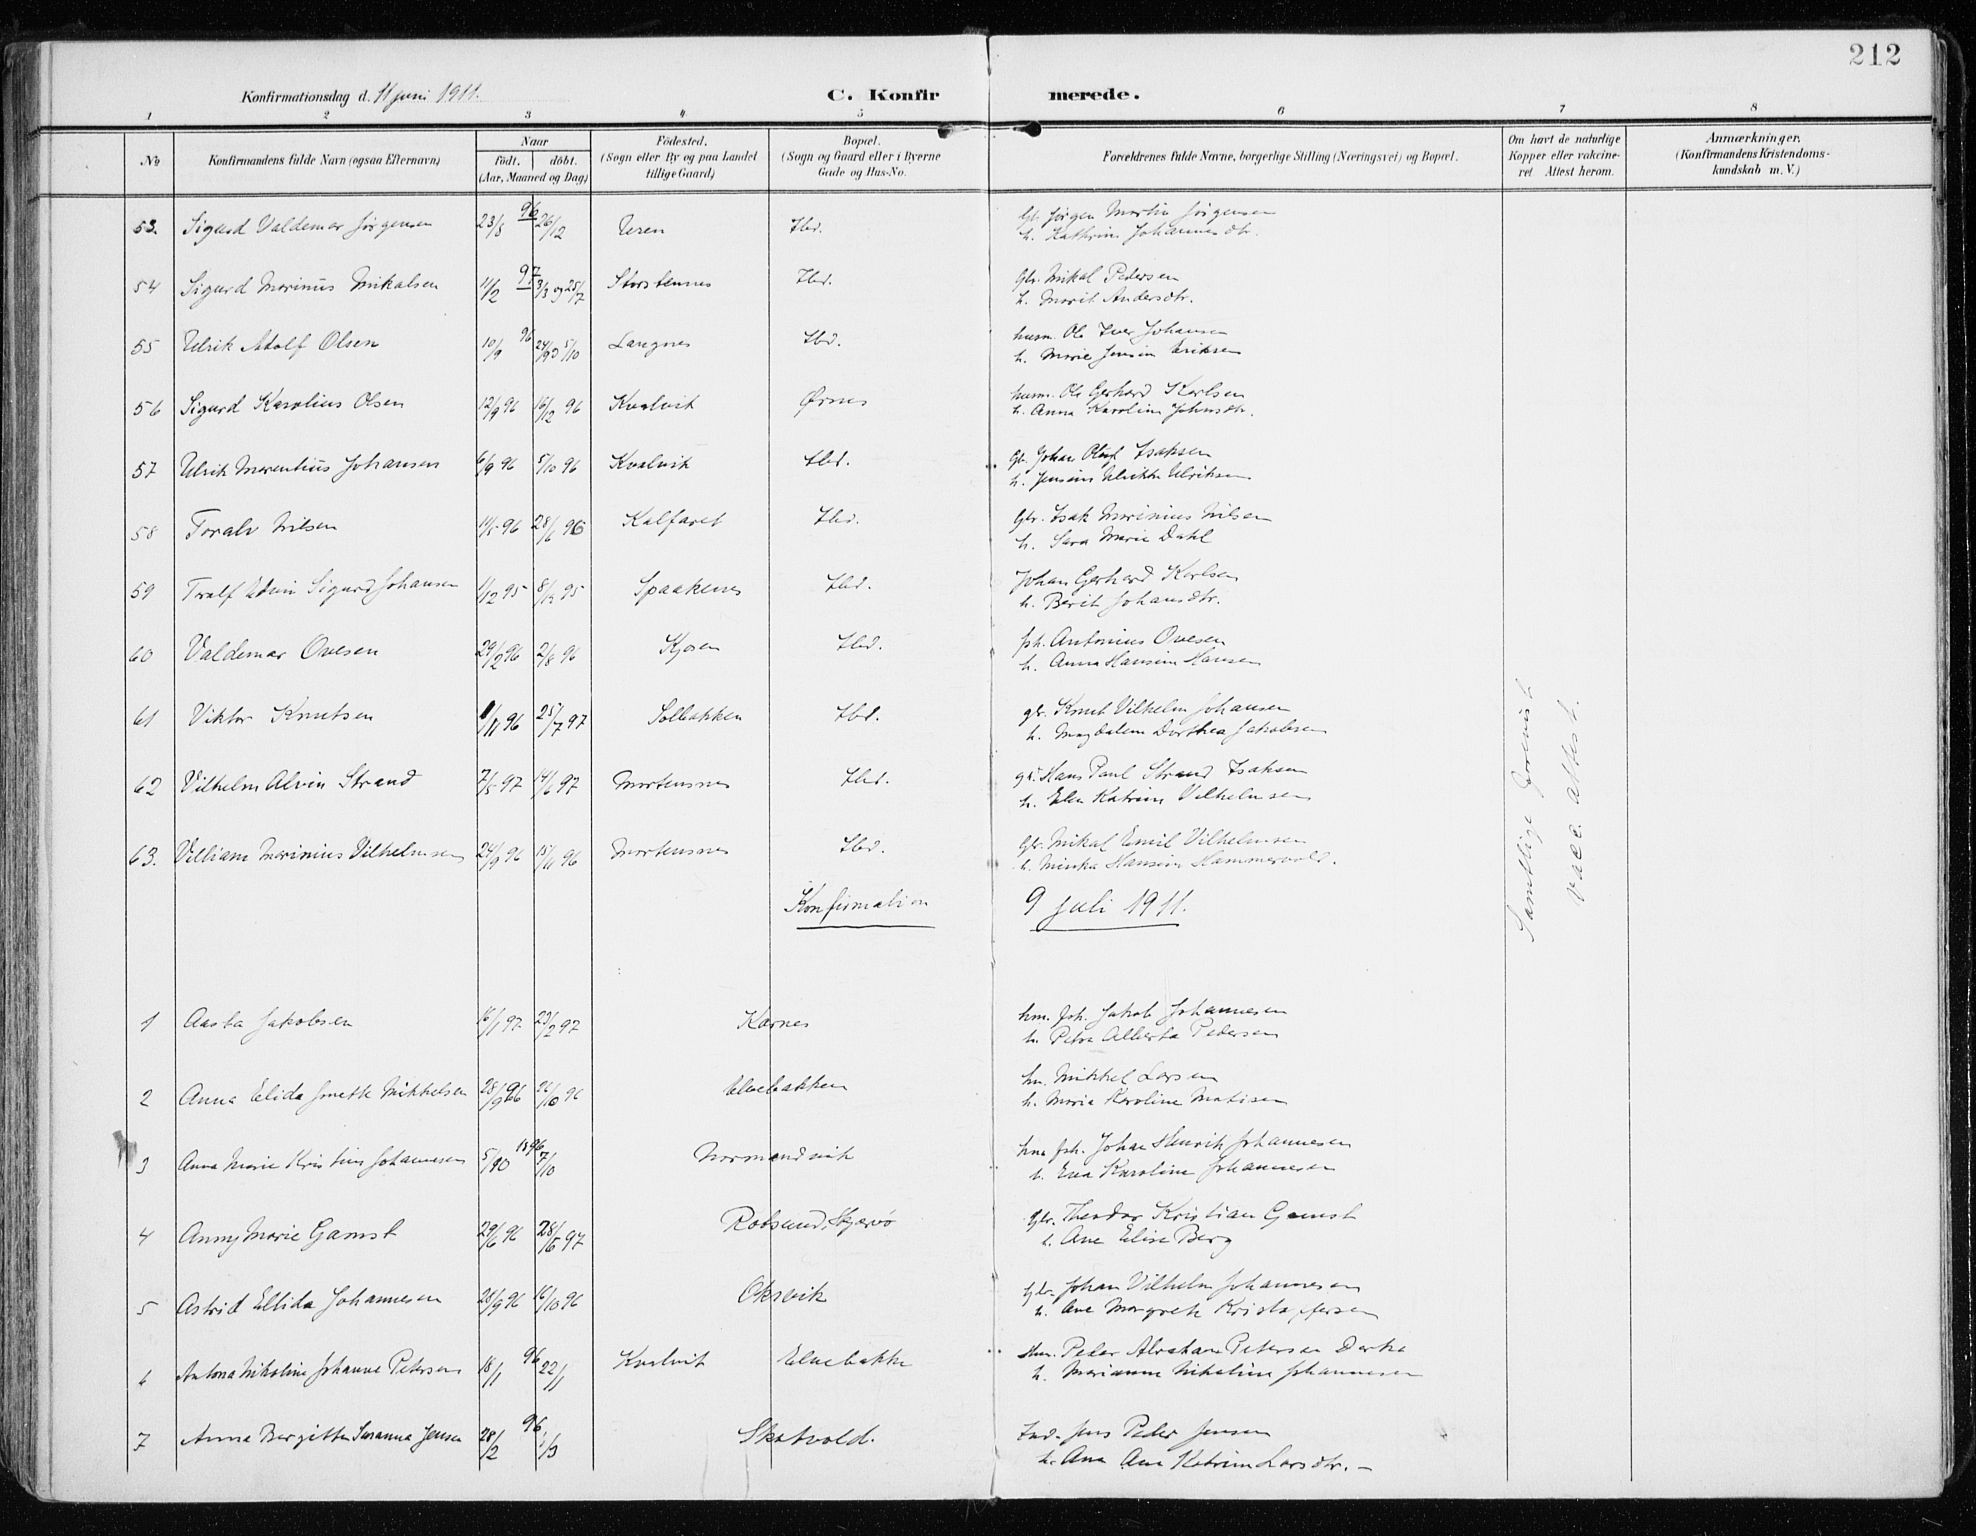 212
Konfirmationsdag d. 11 juni 1911.
C. Konfirmerede.
1 2 3 4 5 6 7 8
No
Konfirmandens fulde Navn (ogsaa Efternavn)
Naar
født. døbt.
(Aar, Maaned og Dag)
Fødested.
(Sogn eller By og paa Landet tillige Gaard)
Bopæl.
(Sogn og Gaard eller i Byerne Gade og Hus-No.
Forældrenes fulde Navne, borgerlige Stilling (Næringsvei) og Bopæl.
Om havt de naturlige Kopper eller vakcineret. Attest herom.
Anmærkninger.
(Konfirmandens Kristendomskundskab m. V.)
53. Sigurd Valdemar Jørgensen 23/8 96 26/12 Uren Ibd. Gb. Jørgen Martin Jørgensen
h. Kathrine Johannesdtr.
54 Sigurd Marinus Mikalsen 11/2 97 3/3 og 25/7 Storstennes Ibd. Gbr. Mikal Pedersen
h. Marit Andersdtr.
55 Ulrik Adolf Olsen 10/9 96 5/10 Langnes Ibd. husm. Ole Iver Johansen
h. Marie Eriksen
56 Sigurd Karolius Olsen 12/9 96 16/12 96 Kvalvik Ørnes husm. Ole Gerhard Karlsen
h. Anna Karolin Johnsdtr.
57 Ulrik Marentius Johansen 6/9 96 5/10 96 Kvalvik Ibd. Gb. Johan Oluf Isaksen
h. Ulrikke Ulriksen
58 Toralv Nilsen 11/5 96 28/6 96 Kalfaret Ibd. Gbr. Isak Marinius Nilsen
h. Sara Marie Dahl
59 Toralf Sigurd Johansen 1/12 95 8/12 95 Spaakenes Ibd. Johan Gerhard Karlsen
h. Berit Johansdtr.
60 Valdemar Ovesen 29/2 96 2/8 96 Kjosen Ibd. fph. Antonius Ovesen
h. Anna Hansine Hansen
61 Viktor Knutsen 1/11 96 25/7 97 Solbakken Ibd. gbr. Knut Vilhelm Johansen
h. Magdalena Dorthea Jakobsen
62 Vilhelm Alvin Strand 7/5 97 14/6 97 Mortensnes Ibd. gbr. Hans Paul Strand Isaksen
h. Elen Katrine Vilhelmsen
63. Villiam Marinius Vilhelmsen 24/9 96 15/11 96 Mortensnes Ibd. Gbr. Mikal Emil Vilhelmsen
h. Minka Hansine Hammervold.
Samtlige forevist vacc. attest.
Konfirmation 9 juli 1911.
1 Aasta Jakobsen 16/1 97 23/2 97 Karnes hm. fph. Jakob Johannesen
h. Petra Alberta Pedersen
2 Anna Elida Mikkelsen 28/9 96 26/10 96 Elvebakken hm. Mikkel Larsen
h. Maria Karoline Matisen
3 Anna Marie Kristine Johannesen 5/10 1896 7/10 Normandvik hm fph. Johan Henrik Johannesen
h. Eva Karoline Johannesen
4 Anny Marie Gamst 29/6 96 28/5 97 Rotsund, Skjervø gbr. Theodor Kristian Gamst
h. Ane Elise Berg
5 Astrid Ellida Johannesen 28/9 96 16/10 96 Oksvik Gbr. Johan Vilhelm Johannesen
h. Ane Margrete Kristoffersen
6 Antona Nikoline Johanne Petersen 18/1 96 22/11 Kvalvik Elvebakke hm. Peder Abraham Petersen Dorka
h. Marianne Nikoline Johannesen
7 Anna Bergitte Susanna Jensen 28/2 96 1/3 Skatvold. Ind. Jens Peder Jensen
h. Ane Katrine Larsdtr. –